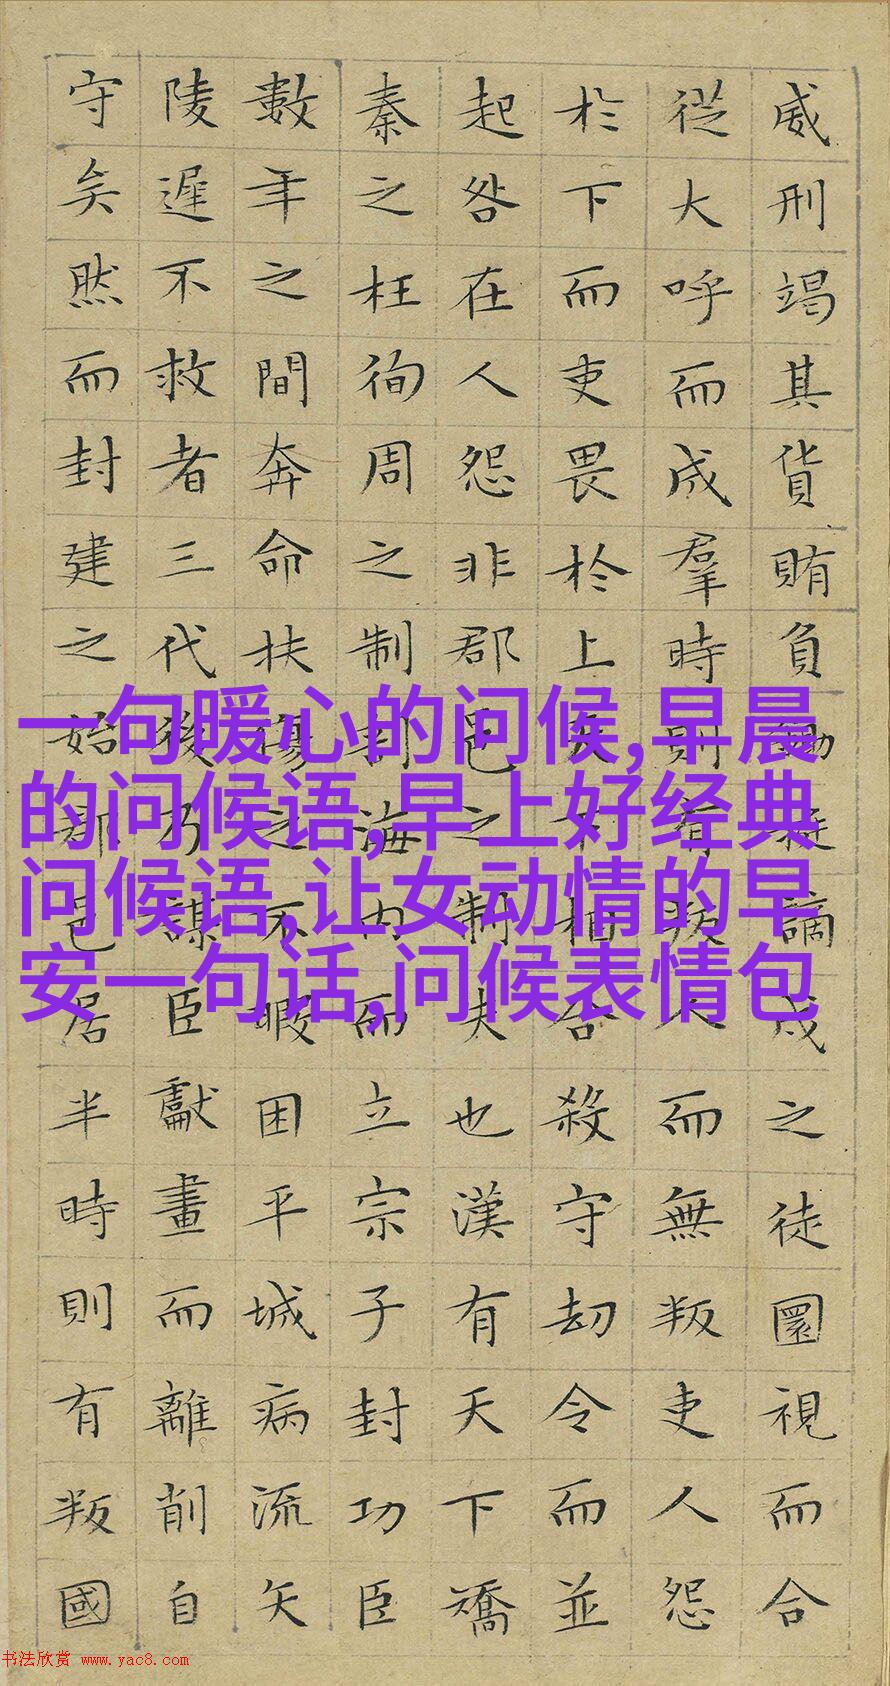 威刑竭其貨賄負鋤梃謫戍之徒圜視而合
從大呼而成羣時則有叛人而無叛吏人怨
於下而吏畏於上天下相合殺守劫令而並
起咎在人怨非郡邑之制失也漢有天下矯
秦之枉徇周之制剖海内而立宗子封功臣
數年之間奔命扶傷之不暇困平城病流矢
陵遲不救者三代後乃謀臣獻畫而離削自
守矣然而封建之始郡邑居半時則有叛國
一句暖心的问候,早晨
的问候语,早上好经典
问候语,让女动情的早
安一句话,问候表情包
书法欣赏 www.yac8.com